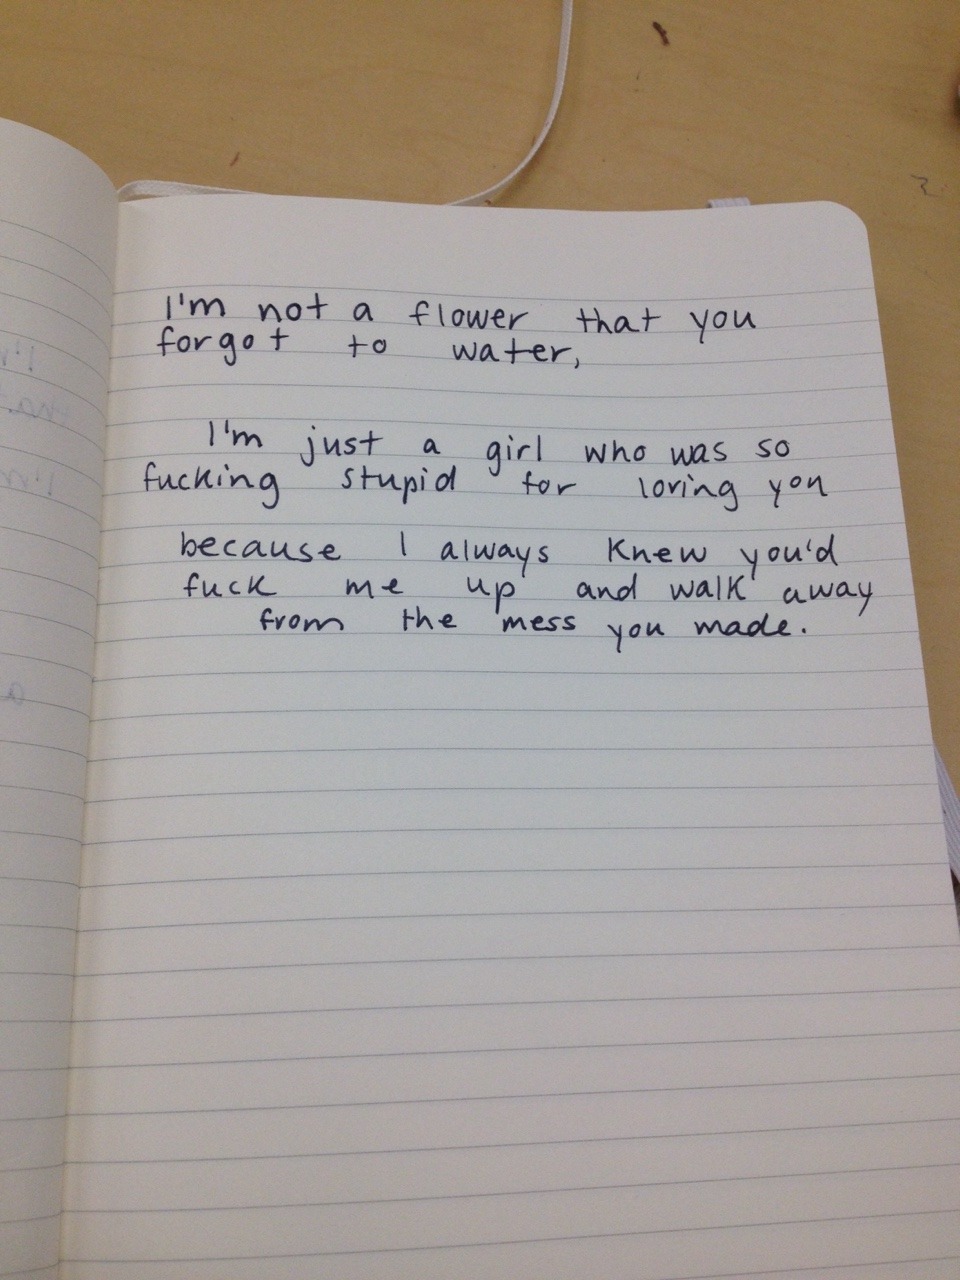 I'm not a flower that you
forgot to water,
I'm just a girl who was so
fucking stupid for loving you
because I always knew you'd
fuck me up and walk away
from the mess you made.